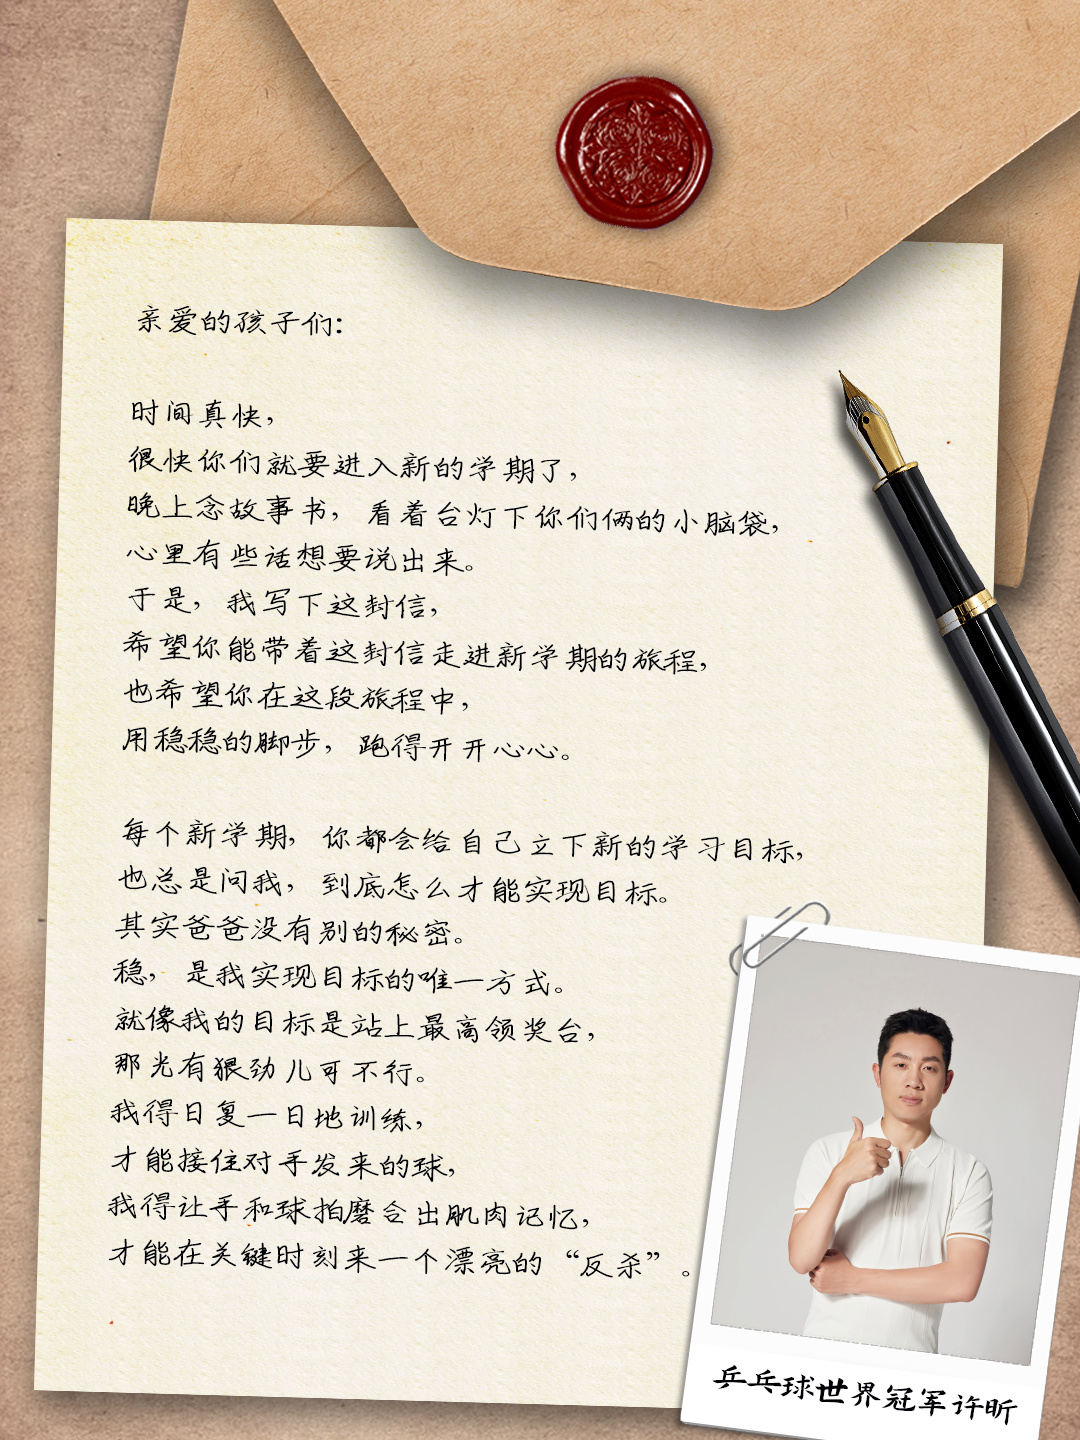 亲爱的孩子们：
时间真快，
很快你们就要进入新的学期了，
晚上念故事书，看着台灯下你们俩的小脑袋，
心里有些话想要说出来。
于是，我写下这封信，
希望你能带着这封信走进新学期的旅程，
也希望你在这段旅程中，
用稳稳的脚步，跑得开开心心。
每个新学期，你都会给自己立下新的学习目标，
也总是问我，到底怎么才能实现目标。
其实爸爸没有别的秘密。
稳，是我实现目标的唯一方式。
就像我的目标是站上最高领奖台，
那光有狠劲儿可不行。
我得日复一日地训练，
才能接住对手发来的球，
我得让手和球拍磨合出肌肉记忆，
才能在关键时刻来一个漂亮的“反杀”。
乒乓球世界冠军许昕